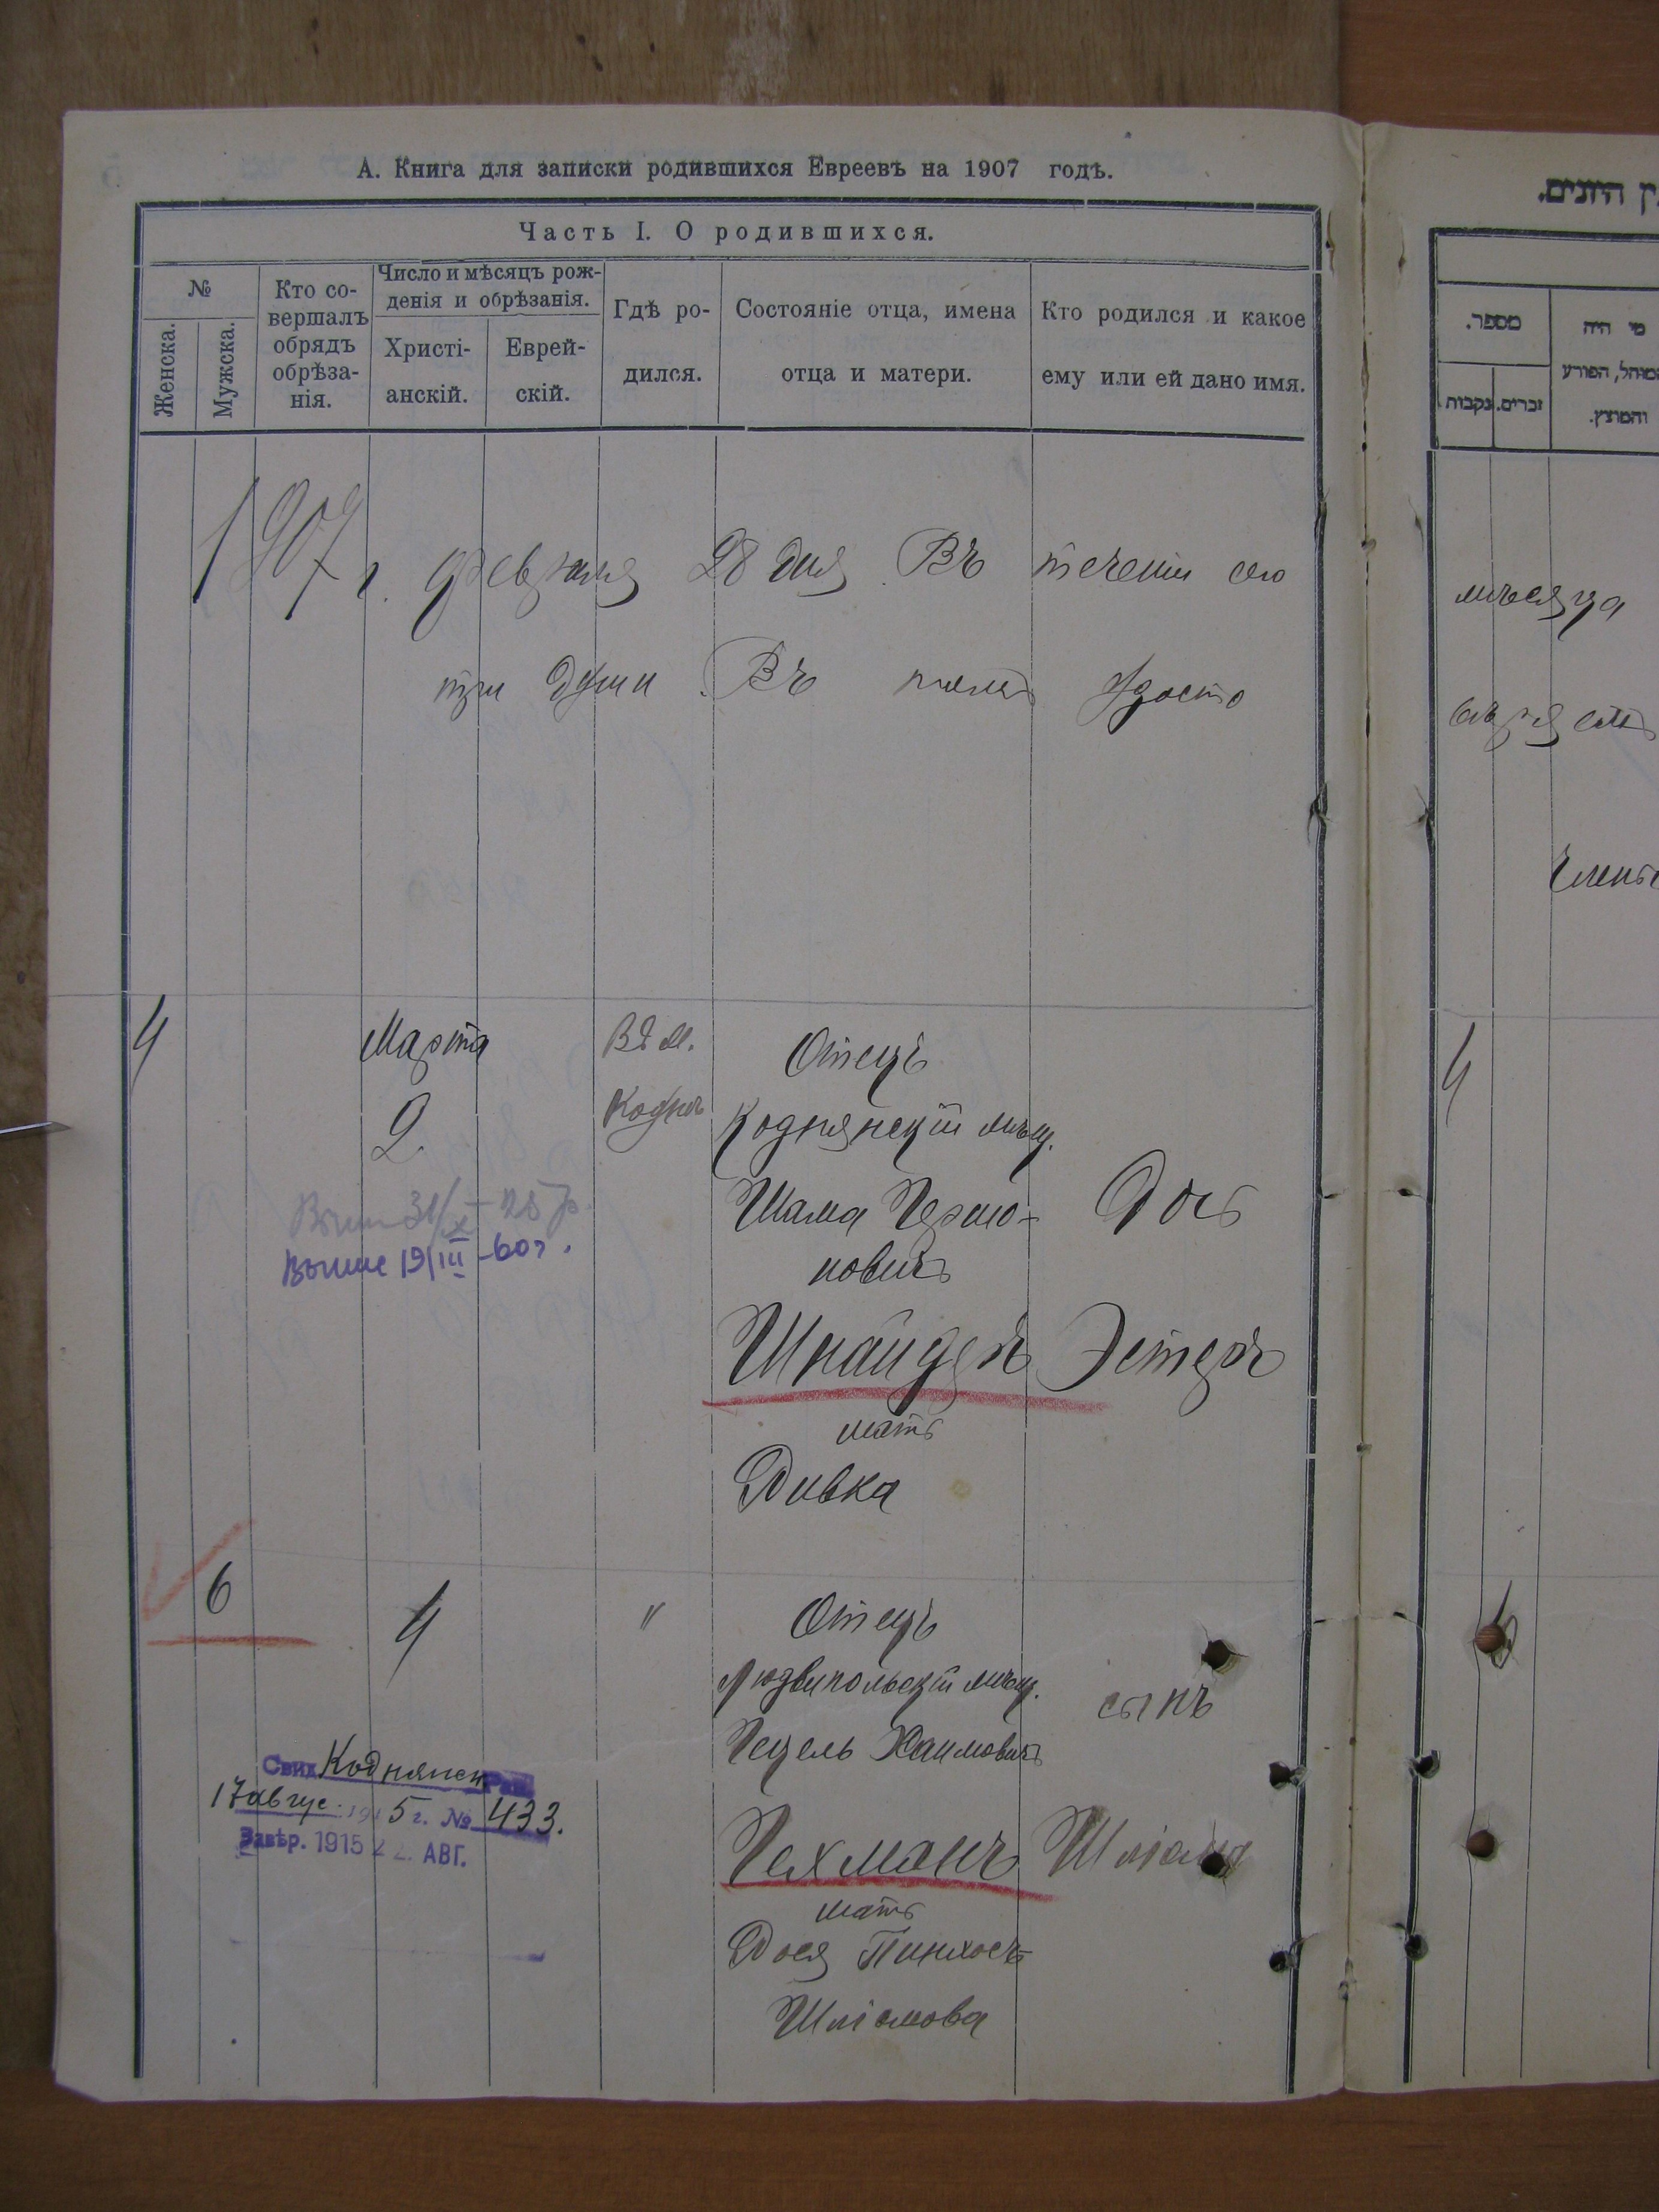 А. Книга для записки родившихся Евреевъ на 1907 годъ.
Часть I. О родившихся.
№
Женска.
Мужска.
Кто со-
вершалъ
обрядъ
обрѣза-
нія.
Число и мѣсяцъ рож-
денія и обрѣзанія.
Христі-
анскій.
Еврей-
скій.
Гдѣ ро-
дился.
Состояніе отца, имена
отца и матери.
Кто родился и какое
ему или ей дано имя.
1907 г. февраля 28 дня Въ теченіи сего
три души Въ томъ удосто
4
Марта
2
В д м.
Кодня
Отецъ
Коднянскій мѣщ.
Шама
новичъ
Шнайдеръ
мать
Ривка
Дочь
Эстеръ
31/X - 28 г.
19/III - 60 г.
6
4
"
Отецъ
Людвипольскій мѣщ.
Гецель Хаимовичъ
Гехманъ
мать
Рося Пинхосъ
Шліомова
сынъ
Шліома
Свид Коднянск Рав.
17 авгус. 1915 г. № 433.
Завѣр. 1915 22 АВГ.
ין היונים.
מספר.
נקבות
זכרים.
מי היה
המוהל, הפורע
והמוצץ.
мѣсяца
4